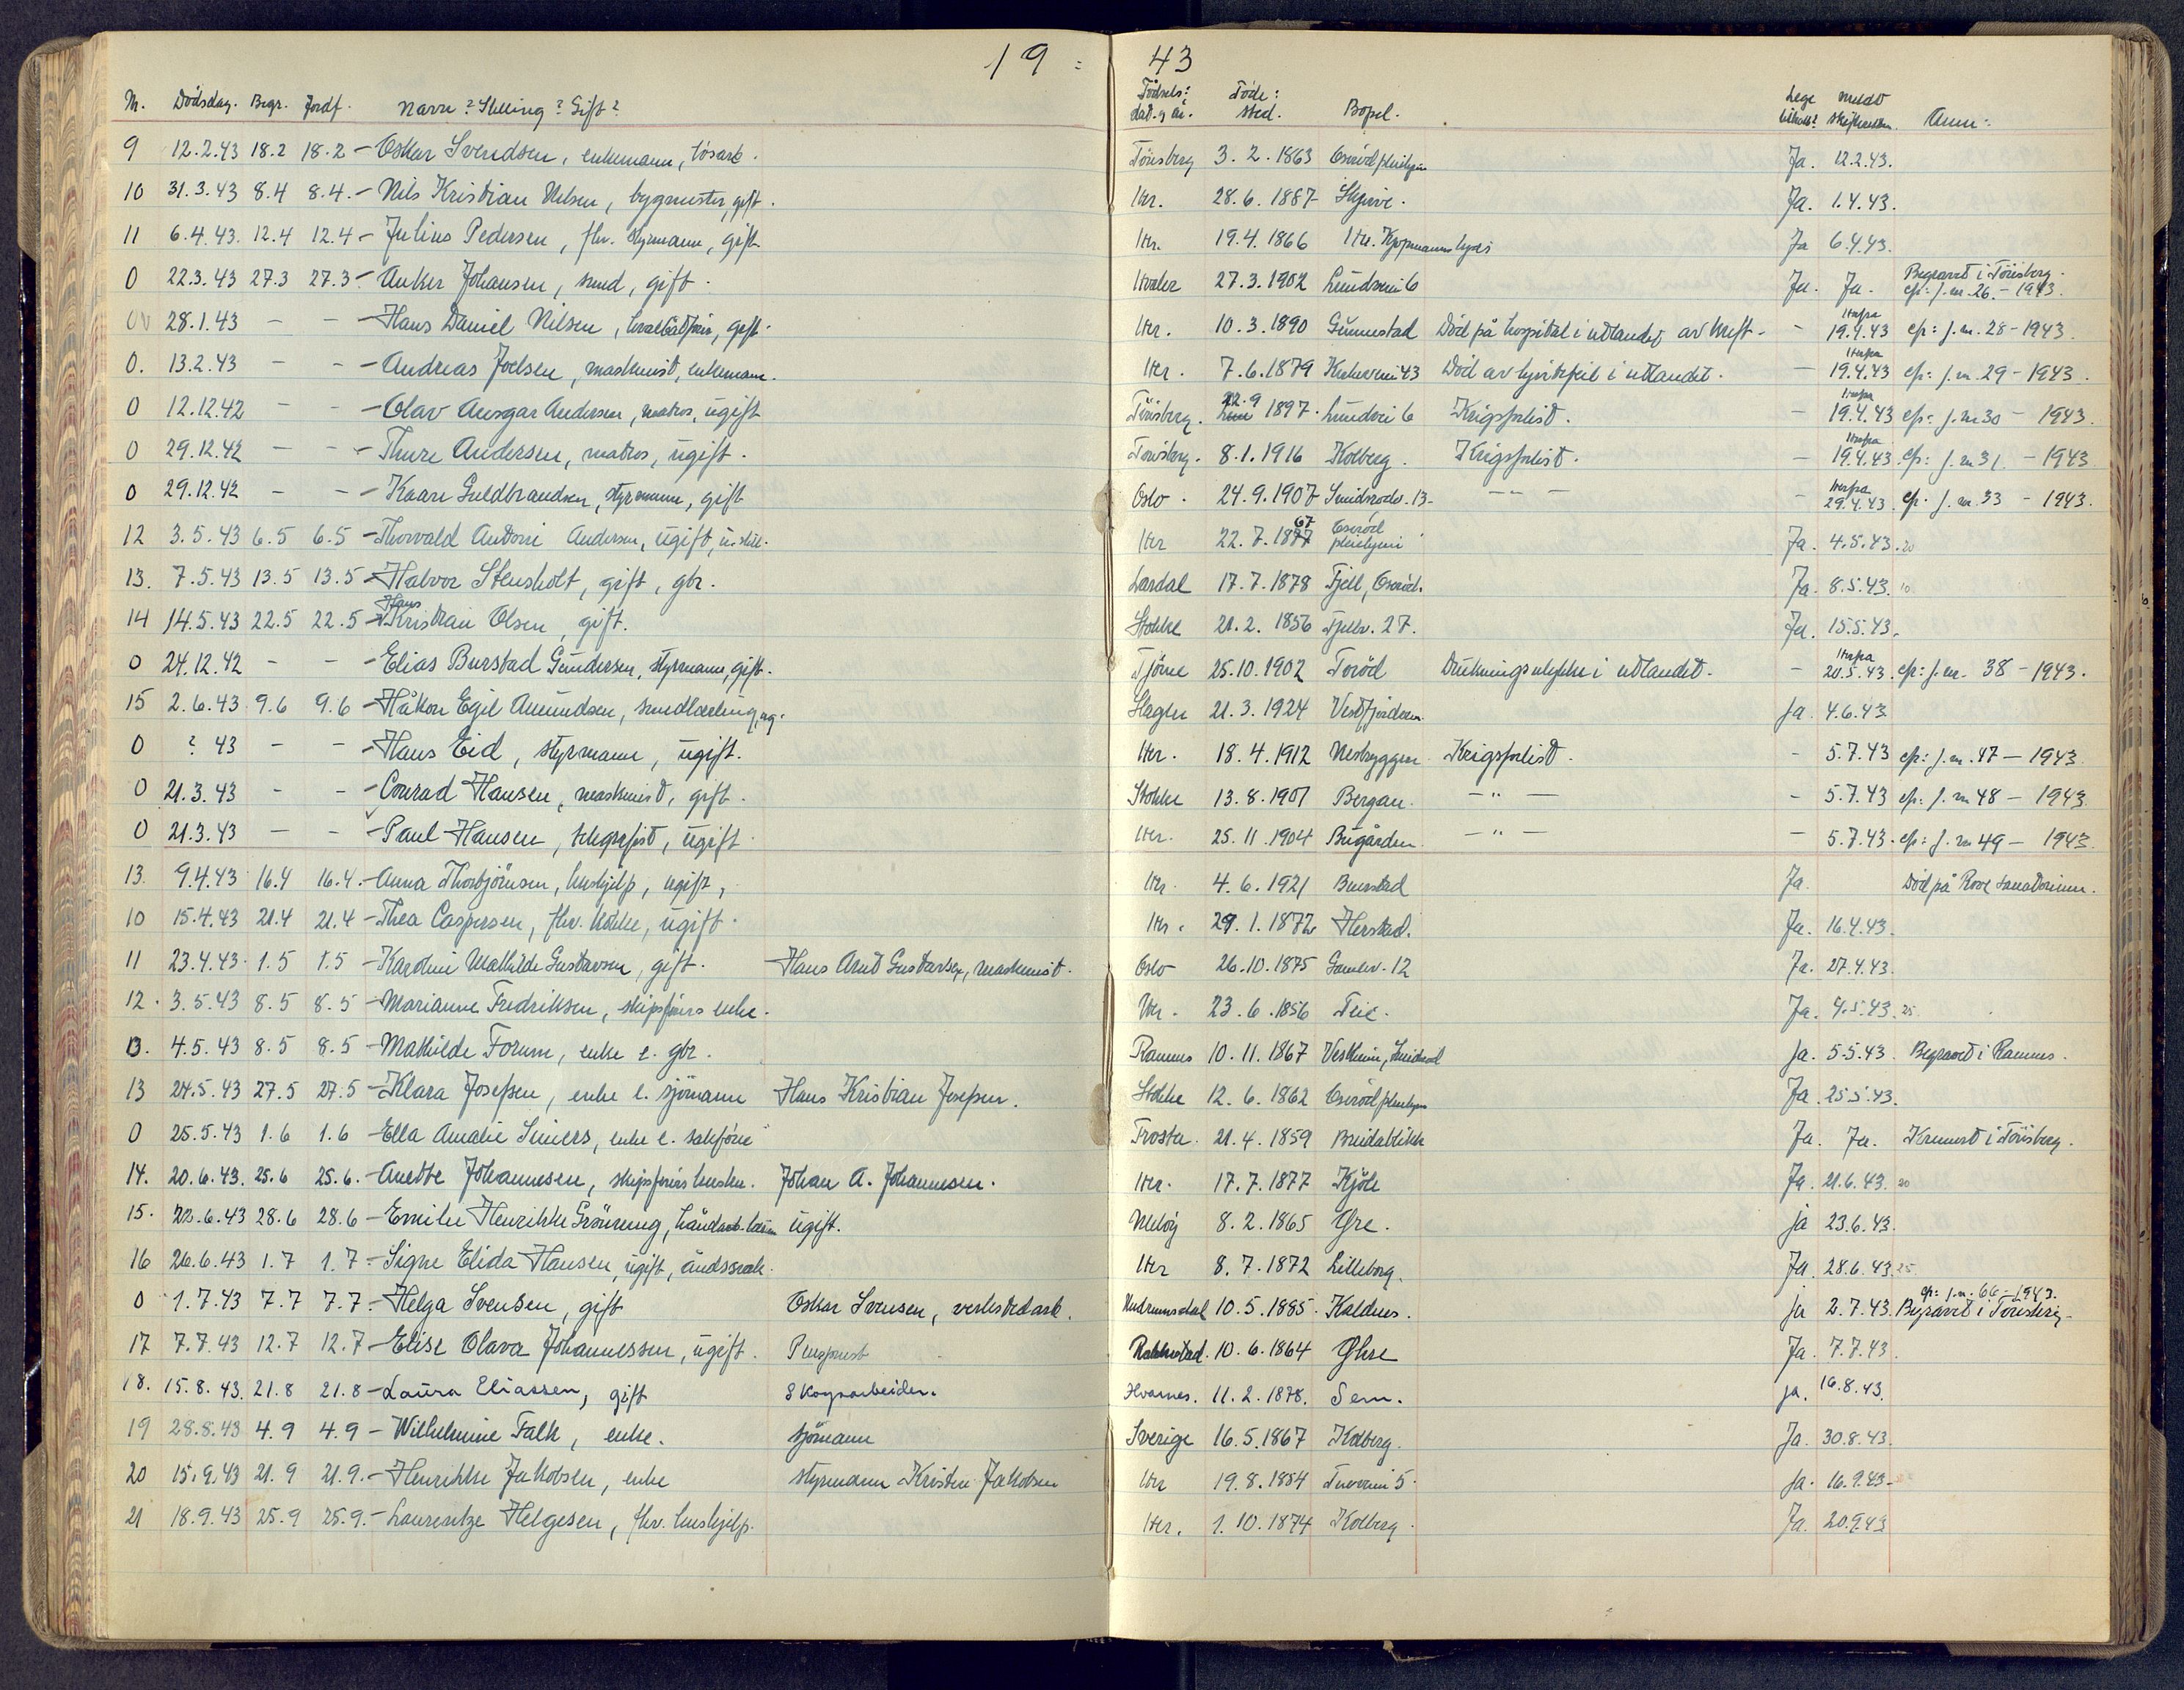 19 : 43
Nr. Dödsdag. Begr. Jordf. Navn? Stilling? Gift? Födsels: dat. og år. Föde: sted. Bopel. Lege meldt Anm:
9 12.2.43 18.2 18.2 - Oskar Svendsen, enkemann, løsarb. Tönsberg 3.2.1863 Ja. 12.2.43.
10 31.3.43 8.4 8.4. - Nils Kristian Nilsen, bygmester, gift. Her. 28.6.1887 Ja. 1.4.43.
11 6.4.43. 12.4 12.4 - Julius Pedersen, fhv. styrmann, gift. Her. 19.4.1866 Ja 6.4.43.
0 22.3.43 27.3 27.3 - Anker Johansen, smed, gift. Hvaler 27.3.1902 Lundveien 6 Ja. Ja. Begravet i Tönsberg. ep: j.nr. 26. - 1943.
28.1.43 - - - Hans Daniel Nilsen, gift. Her. 10.3.1890 Gunnestad Död på hospital i utlandet av kreft. - Herfra 19.4.43 ep: j.nr. 28 - 1943.
0. 13.2.43 - - - Andreas Joelsen, maskinist, enkemann. Her. 7.6.1879 Död av hjertefeil i utlandet. - Herfra 19.4.43 ep: j.nr. 29 - 1943.
0 12.12.42 - - - Olav Ansgar Andersen, matros, ugift Tönsberg. 22.9 1897. Lundvei 6 Krigsforlist. - Herfra 19.4.43 ep: j.nr 30 - 1943.
0 29.12.42 - - - Thure Andersen, matros, ugift. Tönsberg. 8.1.1916 Kolberg. Krigsforlist. - Herfra 19.4.43. ep: j.nr 31. - 1943
0 29.12.42 - - - Kaare Guldbrandsen, styrmann, gift Oslo. 24.9.1907 Smidsrødv. 13. - " - - Herfra 29.4.43 ep. j.nr. 33 - 1943.
12 3.5.43 6.5 6.5 - Thorvald Antoni Andersen, ugift, Her 22.7.1867 Ja. 4.5.43. 20
13. 7.5.43 13.5 13.5 - Halvor Stensholt, gift, gbr. Lardal 17.7.1878 Fjell, Ja. 8.5.43. 10
14 14.5.43 22.5 22.5 - Hans Kristian Olsen, gift. Stokke 21.2.1856 Fjellv. 27. Ja. 15.5.43.
0 24.12.42 - - - Elias Burstad Gundersen, styrmann, gift. Tjöme 25.10.1902 Toröd Drukningsulykke i utlandet. - Herfra 20.5.43. ep: j.nr. 38 - 1943.
15 2.6.43 9.6 9.6 - Håkon Egil Amundsen, smedlærling, ug. Slagen 21.3.1924 Vestfjorden. Ja. 4.6.43
0 ? 43 - - - Hans Eid, styrmann, ugift. Her. 18.4.1912 Nesbryggen Krigsforlist. - 5.7.43 ep: j.nr. 47 - 1943
0 21.3.43 - - - Conrad Hansen, maskinist, gift. Stokke 13.8.1901 Bergan. - " - - 5.7.43 ep: j.nr 48 - 1943
0 21.3.43 - - - Paul Hansen, telegrafist, ugift Her. 25.11.1904 Bugården - " - - 5.7.43. ep: j.nr 49 - 1943.
13. 9.4.43 16.4 16.4. - Anna Thorbjörnsen, hushjelp, ugift, Her. 4.6.1921 Buerstad Ja. Död på Rove sanatorium.
10 15.4.43 21.4 21.4 - Thea Caspersen, fhv. kokke, ugift. Her. 29.1.1872 Herstad. Ja. 16.4.43.
11 23.4.43. 1.5 1.5 - Karoline Mathilde Gustavsen, gift. Hans Arnt Gustavsen, maskinist. Oslo 26.10.1875 Gamlev. 12 Ja. 27.4.43.
12. 3.5.43 8.5 8.5 - Marianne Fredriksen, skipsförers enke. Her. 23.6.1856 Teie. Ja. 4.5.43. 25
13. 4.5.43 8.5 8.5 - Mathilde Forum, enke e. gbr. Ramnes 10.11.1867 Vestheim, Smidsrød Ja. 5.5.43. Begravet i Ramnes.
13 24.5.43 27.5 27.5 - Klara Josefsen, enke e. sjömann Hans Kristian Josefsen. Stokke 12.6.1862 Ja. 25.5.43.
0 25.5.43 1.6 1.6 - Ella Amalie enke e. sakförer Trosta. 21.4.1859 Breidablikk Ja. Ja. Kremert i Tönsberg.
14. 20.6.43. 25.6 25.6. - Anette Johannesen, skipsförers hustru. Johan A. Johannesen. Her. 17.7.1877 Kjöle Ja. 21.6.43. 20
15. 22.6.43 28.6 28.6 - Emilie Henrikke Grönning, ugift. Meløy 8.2.1865 Øre. ja 23.6.43.
16 26.6.43 1.7 1.7 - Signe Elida Hansen, ugift, åndssvak. Her 8.7.1872 Lilleborg. Ja. 28.6.43. 25
0 1.7.43 7.7 7.7. - Helga Svensen, gift Oskar Svensen, verkstedarb. Undrumsdal 10.5.1885. Kaldnes. ja 2.7.43. ep: j.nr. 66 - 1943. Begravet i Tönsberg.
17 7.7.43 12.7 12.7 - Elise Olava Johannessen, ugift. 10.6.1864 Ja. 7.7.43.
18. 15.8.43. 21.8 21.8 - Laura Eliassen, gift Skogsarbeider. Hvarnes. 11.2.1878. Sem. ja. 16.8.43.
19 28.8.43 4.9 4.9 - Wilhelmine Falk, enke. sjömann Sverige 16.5.1867 Kolberg. Ja. 30.8.43.
20 15.9.43 21.9 21.9. - Henrikke Jakobsen, enke styrmann Kristen Jakobsen Her 19.8.1854 ja. 16.9.43.
21 18.9.43 25.9 25.9. - Laurentze Helgesen, fhv. hushjelp. Her. 1.10.1874 Kolberg. Ja. 20.9.43